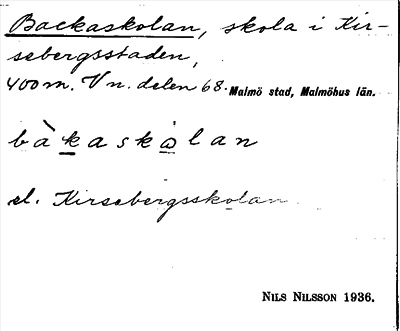 Backaskolan, skola i Kir-
sebergsstaden,
400 m. V n. delen 68. Malmö stad, Malmöhus län.
bàkaskolan
el. Kirsebergsskolan
NILS NILSSON 1936.